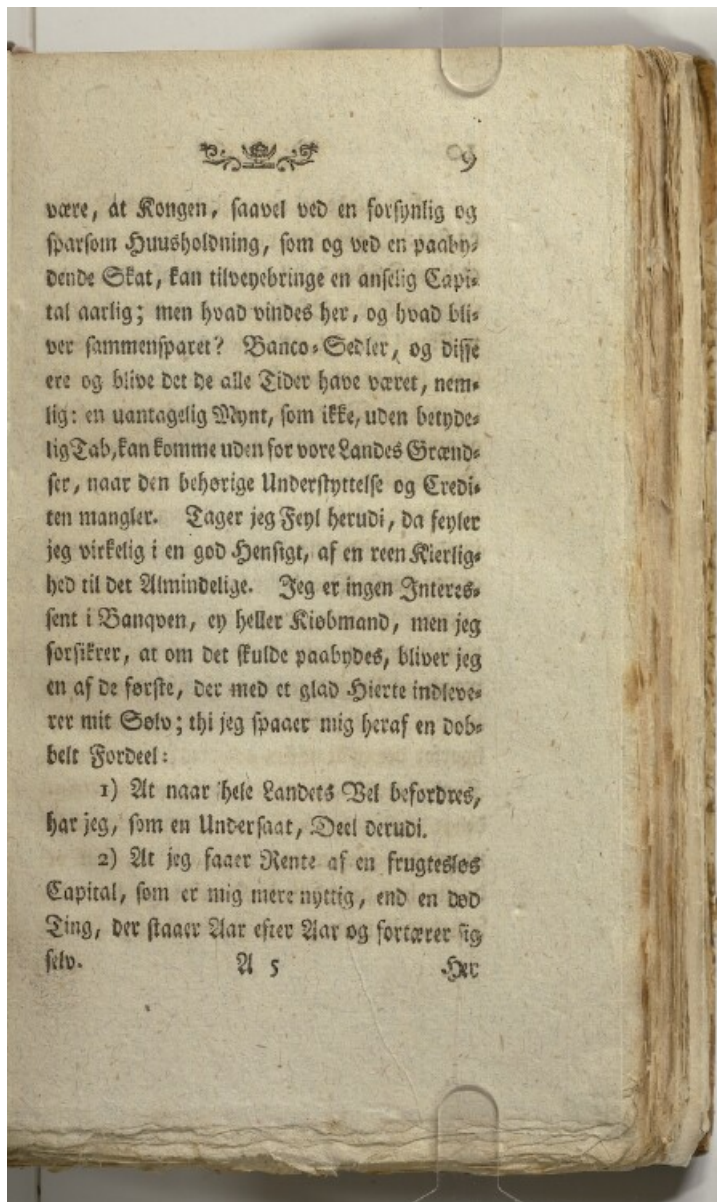 9
være, at Kongen, saavel ved en forsynlig og
sparsom Huusholdning, som og ved en paaby⸗
dende Skat, kan tilveyebringe en anselig Capi⸗
tal aarlig; men hvad vindes her, og hvad bli⸗
ver sammensparet? Banco⸗Sedler, og disse
ere og blive det de alle Tider have været, nem⸗
lig: en uantagelig Mynt, som ikke, uden betyde⸗
lig Tab, kan komme uden for vore Landes Grænd⸗
ser, naar den behørige Understyttelse og Credi⸗
ten mangler. Tager jeg Feyl herudi, da feyler
jeg virkelig i en god Hensigt, af en reen Kierlig⸗
hed til det Almindelige. Jeg er ingen Interes⸗
sent i Banqven, ey heller Kiøbmand, men jeg
forsikrer, at om det skulde paabydes, bliver jeg
en af de første, der med et glad Hierte indleve⸗
rer mit Sølv; thi jeg spaaer mig heraf en dob⸗
belt Fordeel:
1) At naar hele Landets Vel befordres,
har jeg, som en Undersaat, Deel derudi.
2) At jeg faaer Rente af en frugtesløs
Capital, som er mig mere nyttig, end en død
Ting, der staaer Aar efter Aar og fortærer sig
selv. A 5 Her